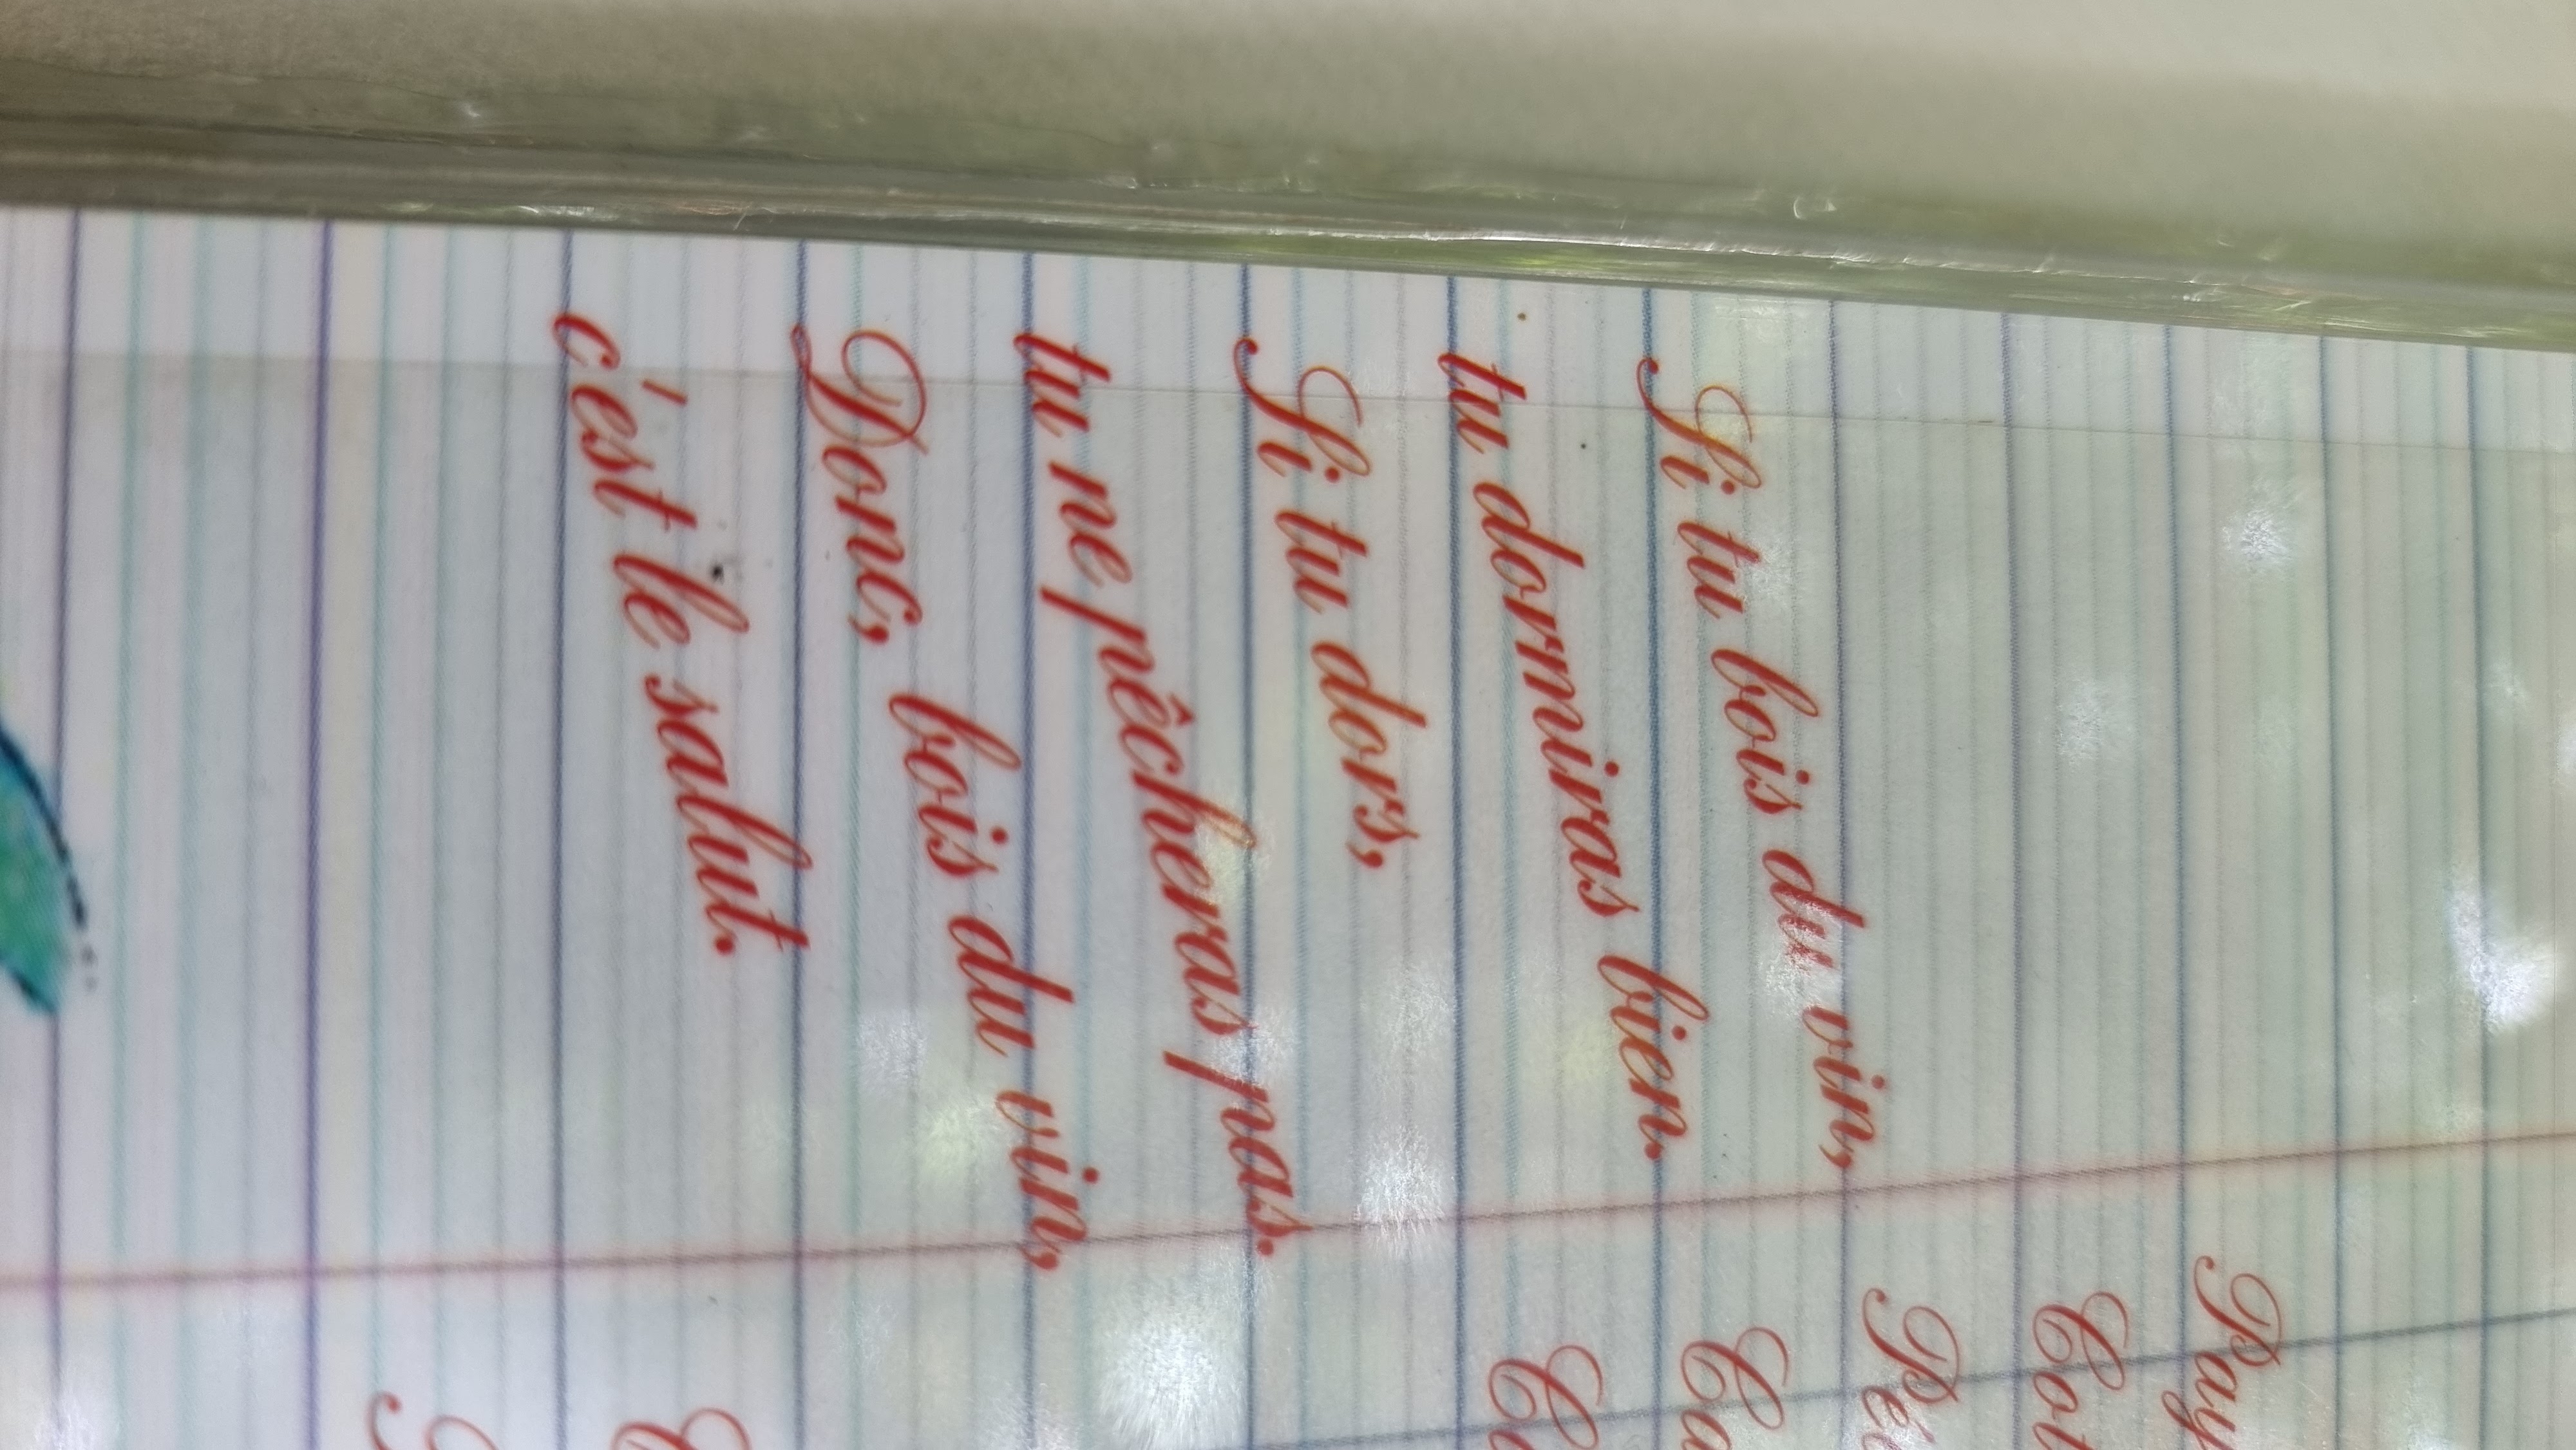 Si tu bois du vin,
tu dormiras bien.
Si tu dors,
tu ne pêcheras pas.
Donc, bois du vin,
c'est le salut.